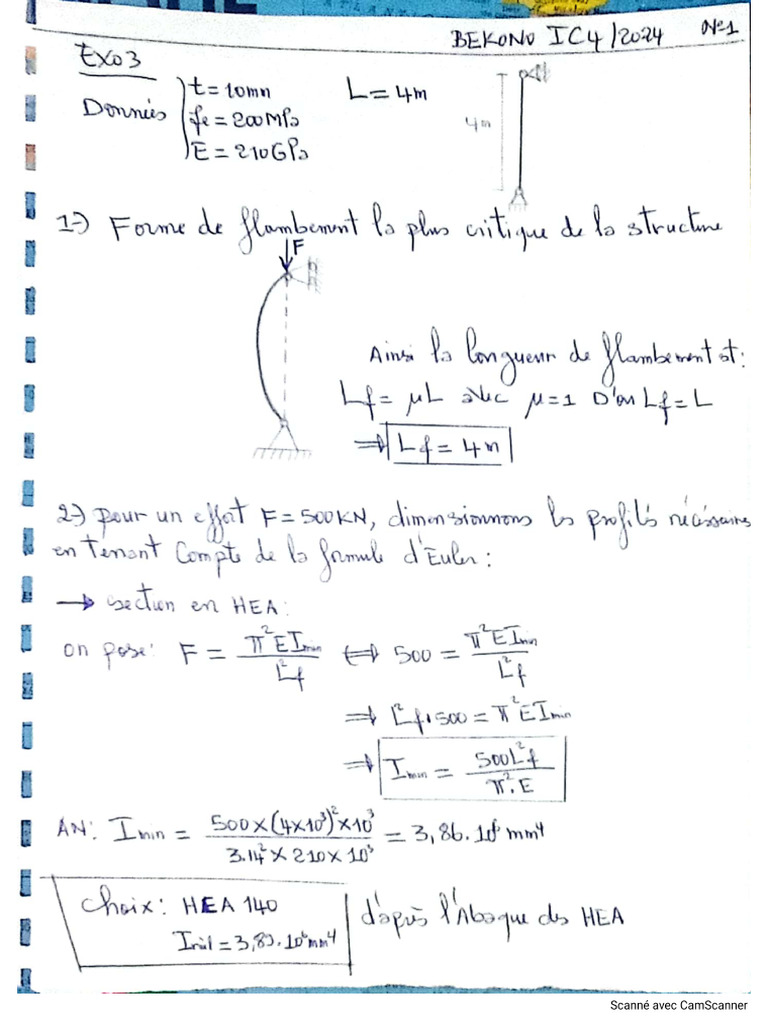 BEKONO IC4/2024 N°1
Exo3
Données
t = 10mm
fe = 200MPa
E = 210GPa
L = 4m
4m
1-) Forme de flambement la plus critique de la structure
F
Ainsi la longueur de flambement est:
Lf = μL avec μ=1 D'où Lf = L
⇒ Lf = 4m
2-) pour un effort F = 500KN, dimensionnons les profilés nécéssaires
en tenant compte de la formule d'Euler:
→ section en HEA:
on pose: F = π²EImin / L²f ⟺ 500 = π²EImin / L²f
⇒ L²f.500 = π²EImin
⇒ Imin = 500L²f / π².E
AN: Imin = 500×(4×10³)²×10³ / 3.14²×210×10³ = 3,86.10⁶ mm⁴
choix: HEA 140
Iréel = 3,89.10⁶mm⁴
d'après l'Abaque des HEA
Scanné avec CamScanner